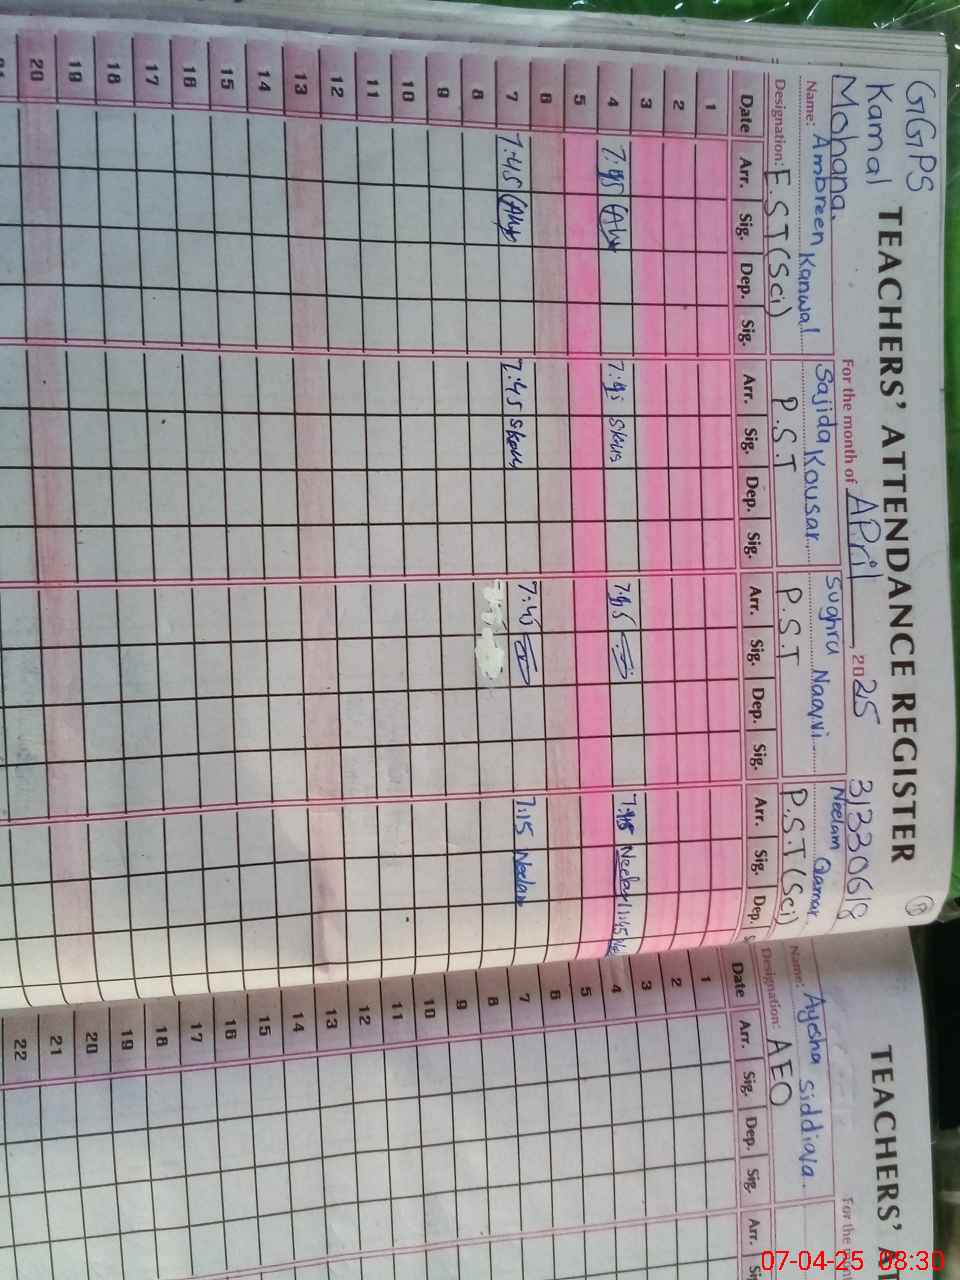 GGPS
Kamal
Mohana.
TEACHERS' ATTENDANCE REGISTER
18
For the month of April 2025 31330618
Name: Ambreen Kanwal Sajida Kousar Sughra Naqvi Neelam Qamar
Designation: E.S.T (Sci) P.S.T P.S.T P.S.T (Sci)
Date Arr. Sig. Dep. Sig. Arr. Sig. Dep. Sig. Arr. Sig. Dep. Sig. Arr. Sig. Dep. S
1
2
3
4 7:45 7:45 7:45 7:45 Neelam 11:45
5
6
7 7:45 7:45 7:45 7:15 Neelam
8
9
10
11
12
13
14
15
16
17
18
19
20
21
TEACHERS' A
For the
Name: Ayesha Siddiqa
Designation: AEO
Date Arr. Sig. Dep. Sig. Arr. Si
1
2
3
4
5
6
7
8
9
10
11
12
13
14
15
16
17
18
19
20
21
22
07-04-25 08:30